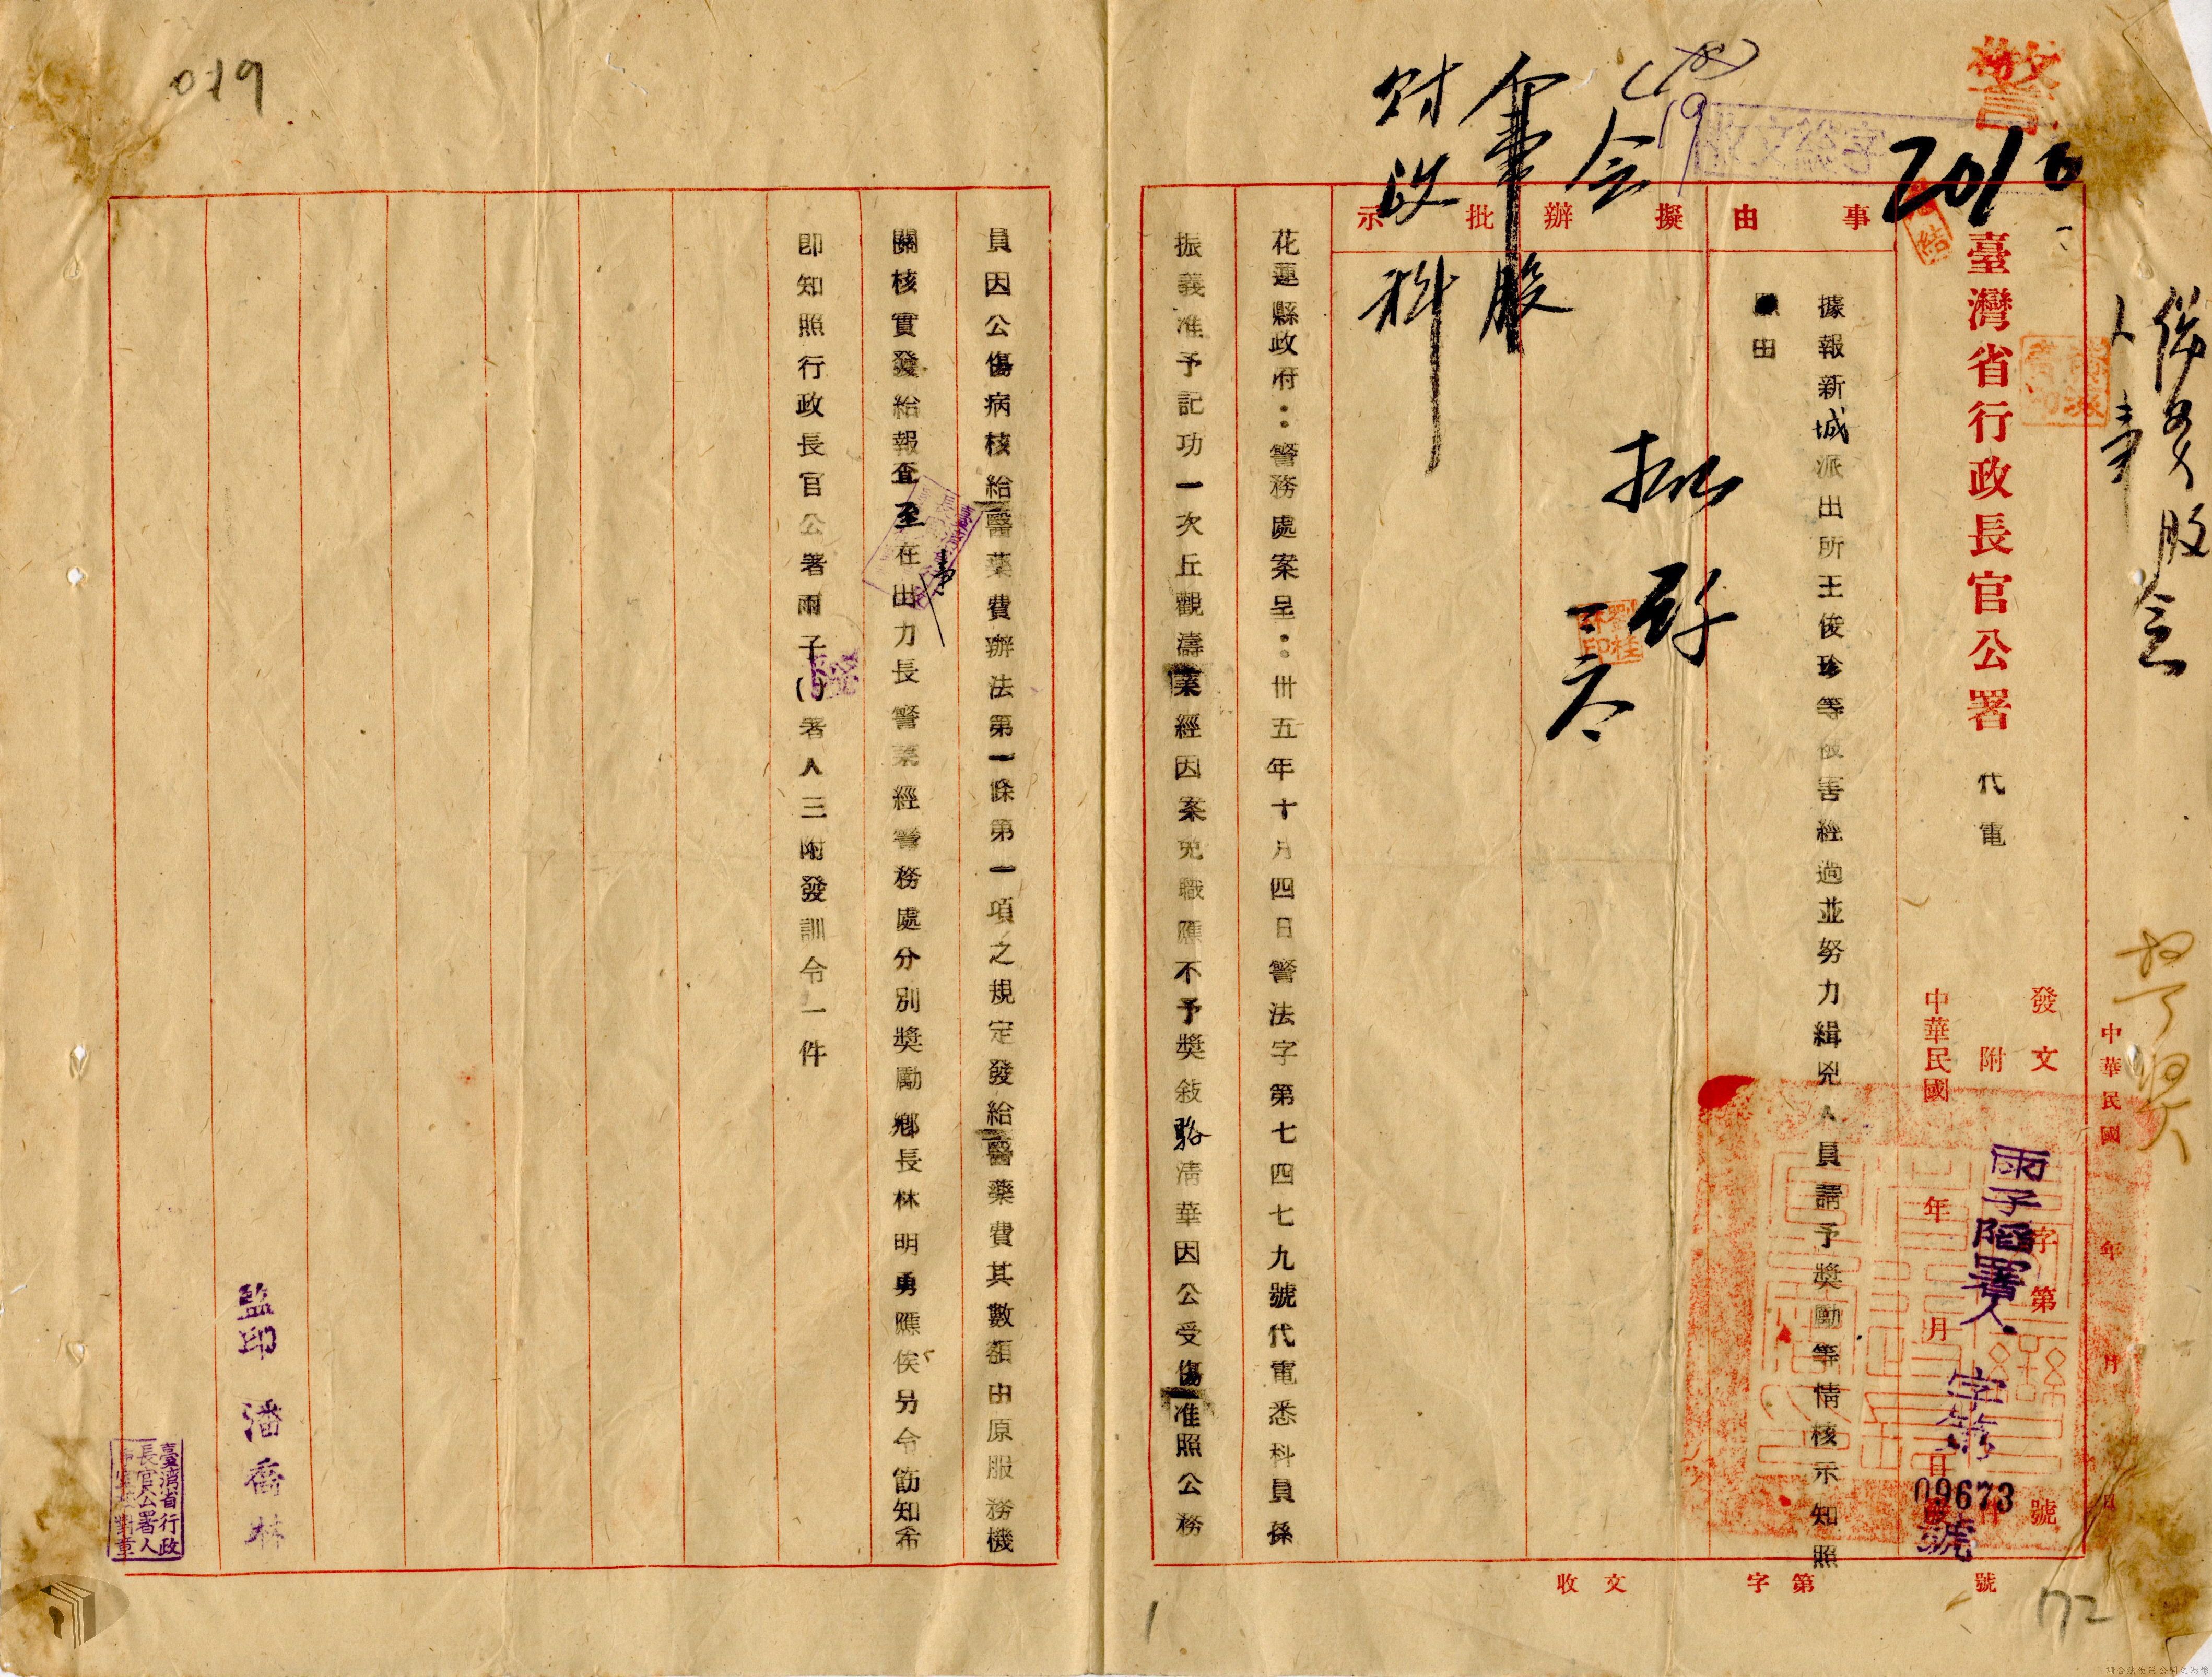 019
警
20186
收文總字
19
會
人事股
財政科
俸薪股會
人事
臺灣省行政長官公署 代電
中華民國 年 月 日
發文 字第 號
附 件
中華民國 年 月 日
雨子陷署人 字第 09673 號
事由
擬辦
批示
據報新城派出所王俊珍等被害經過並努力緝兇人員請予獎勵等情核示知照
由
花蓮縣政府：警務處案呈：卅五年十月四日警法字第七四七九號代電悉科員孫
振義准予記功一次丘觀濤業經因案免職應不予獎敍駱淸華因公受傷准照公務
員因公傷病核給醫藥費辦法第一條第一項之規定發給醫藥費其數額由原服務機
關核實發給報查至在出力長警業經警務處分別獎勵鄉長林明勇應俟另令飭知希
即知照行政長官公署雨子( )署人三附發訓令一件
監印 潘喬林
臺灣省行政長官公署人
收文 字第 號
1
172